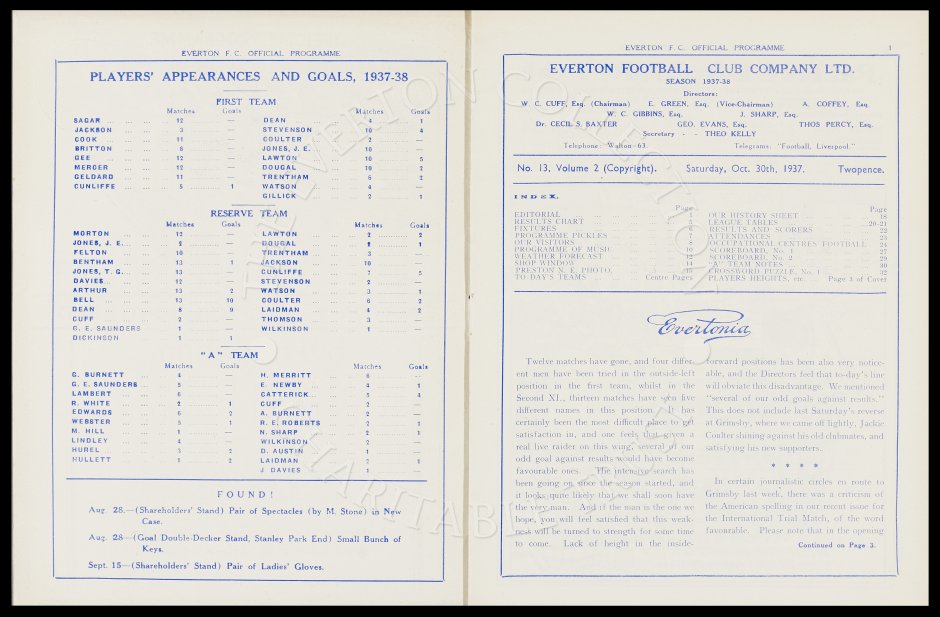 EVERTON F. C. OFFICIAL PROGRAMME
PLAYERS' APPEARANCES AND GOALS, 1937-38
FIRST TEAM
Matches Goals Matches Goals
SAGAR ... ... 12 — DEAN ... ... 4 1
JACKSON ... ... 3 — STEVENSON ... ... 10 4
COOK ... ... 11 — COULTER ... ... 2 —
BRITTON ... ... 8 — JONES, J. E. ... ... 10 —
GEE ... ... 12 — LAWTON ... ... 10 5
MERCER ... ... 12 — DOUGAL ... ... 10 2
GELDARD ... ... 11 — TRENTHAM ... ... 6 2
CUNLIFFE ... ... 5 1 WATSON ... ... 4 —
GILLICK ... ... 2 1
RESERVE TEAM
Matches Goals Matches Goals
MORTON ... ... 12 — LAWTON ... ... 2 2
JONES, J. E. ... ... 2 — DOUGAL ... ... 2 1
FELTON ... ... 10 — TRENTHAM ... ... 3 —
BENTHAM ... ... 13 1 JACKSON ... ... 10 —
JONES, T. G. ... ... 13 — CUNLIFFE ... ... 7 5
DAVIES ... ... 12 — STEVENSON ... ... 2 —
ARTHUR ... ... 13 2 WATSON ... ... 3 1
BELL ... ... 13 10 COULTER ... ... 6 2
DEAN ... ... 8 9 LAIDMAN ... ... 4 2
CUFF ... ... 2 — THOMSON ... ... 3 —
G. E. SAUNDERS ... 1 — WILKINSON ... ... 1 —
DICKINSON ... ... 1 1
"A" TEAM
Matches Goals Matches Goals
G. BURNETT ... ... 4 — H. MERRITT ... ... 6 —
G. E. SAUNDERS ... 5 — E. NEWBY ... ... 4 1
LAMBERT ... ... 6 — CATTERICK ... ... 5 4
R. WHITE ... ... 2 1 CUFF ... ... 2 —
EDWARDS ... ... 6 2 A. BURNETT ... ... 2 —
WEBSTER ... ... 5 1 R. E. ROBERTS ... ... 2 —
M. HILL ... ... 1 — N. SHARP ... ... 2 1
LINDLEY ... ... 4 — WILKINSON ... ... 2 —
HUREL ... ... 3 2 D. AUSTIN ... ... 1 —
HULLETT ... ... 1 2 LAIDMAN ... ... 2 1
J DAVIES ... ... 1 —
FOUND!
Aug. 28.—(Shareholders' Stand) Pair of Spectacles (by M. Stone) in New
Case.
Aug. 28—(Goal Double-Decker Stand, Stanley Park End) Small Bunch of
Keys.
Sept. 15—(Shareholders' Stand) Pair of Ladies' Gloves.
EVERTON F. C. OFFICIAL PROGRAMME 1
EVERTON FOOTBALL CLUB COMPANY LTD.
SEASON 1937-38
Directors:
W. C. CUFF, Esq. (Chairman) E. GREEN, Esq. (Vice-Chairman) A. COFFEY, Esq.
W. C. GIBBINS, Esq. J. SHARP, Esq.
Dr. CECIL S. BAXTER GEO. EVANS, Esq. THOS PERCY, Esq.
Secretary - - THEO KELLY
Telephone: Walton 63. Telegrams: "Football, Liverpool."
No. 13, Volume 2 (Copyright). Saturday, Oct. 30th, 1937. Twopence.
INDEX.
Page Page
EDITORIAL ... 1 OUR HISTORY SHEET ... 18
RESULTS CHART ... 5 LEAGUE TABLES ... 20-21
FIXTURES ... 6 RESULTS AND SCORERS ... 22
PROGRAMME PICKLES ... 7 ATTENDANCES ... 23
OUR VISITORS ... 8 OCCUPATIONAL CENTRES FOOTBALL 24
PROGRAMME OF MUSIC ... 10 SCOREBOARD, No. 1 ... 27
WEATHER FORECAST ... 12 SCOREBOARD, No. 2 ... 29
SHOP WINDOW ... 14 "A" TEAM NOTES ... 30
PRESTON N. E. PHOTO, ... CROSSWORD PUZZLE, No. 1 ... 32
TO-DAY'S TEAMS Centre Pages PLAYERS HEIGHTS, etc. Page 3 of Cover
Evertonia
Twelve matches have gone, and four differ-
ent men have been tried in the outside-left
position in the first team, whilst in the
Second XI., thirteen matches have seen five
different names in this position. It has
certainly been the most difficult place to get
satisfaction in, and one feels that given a
real live raider on this wing, several of our
odd goal against results would have become
favourable ones. The intensive search has
been going on since the season started, and
it looks quite likely that we shall soon have
the very man. And if the man is the one we
hope, you will feel satisfied that this weak-
ness will be turned to strength for some time
to come. Lack of height in the inside-
forward positions has been also very notice-
able, and the Directors feel that to-day's line
will obviate this disadvantage. We mentioned
"several of our odd goals against results."
This does not include last Saturday's reverse
at Grimsby, where we came off lightly, Jackie
Coulter shining against his old clubmates, and
satisfying his new supporters.
* * * *
In certain journalistic circles en route to
Grimsby last week, there was a criticism of
the American spelling in our recent issue for
the International Trial Match, of the word
favourable. Please note that in the opening
Continued on Page 3.
THE EVERTON COLLECTION
CHARITABLE